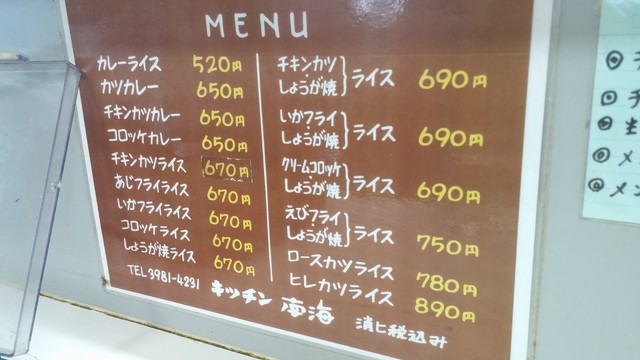 MENU
カレーライス 520円
カツカレー 650円
チキンカツカレー 650円
コロッケカレー 650円
チキンカツライス 670円
あじフライライス 670円
いかフライライス 670円
コロッケライス 670円
しょうが焼ライス 670円
TEL 3981-4231
チキンカツ
しょうが焼 } ライス 690円
いかフライ
しょうが焼 } ライス 690円
クリームコロッケ
しょうが焼 } ライス 690円
えびフライ
しょうが焼 } ライス 750円
ロースカツライス 780円
ヒレカツライス 890円
キッチン 南海 消ヒ税込み